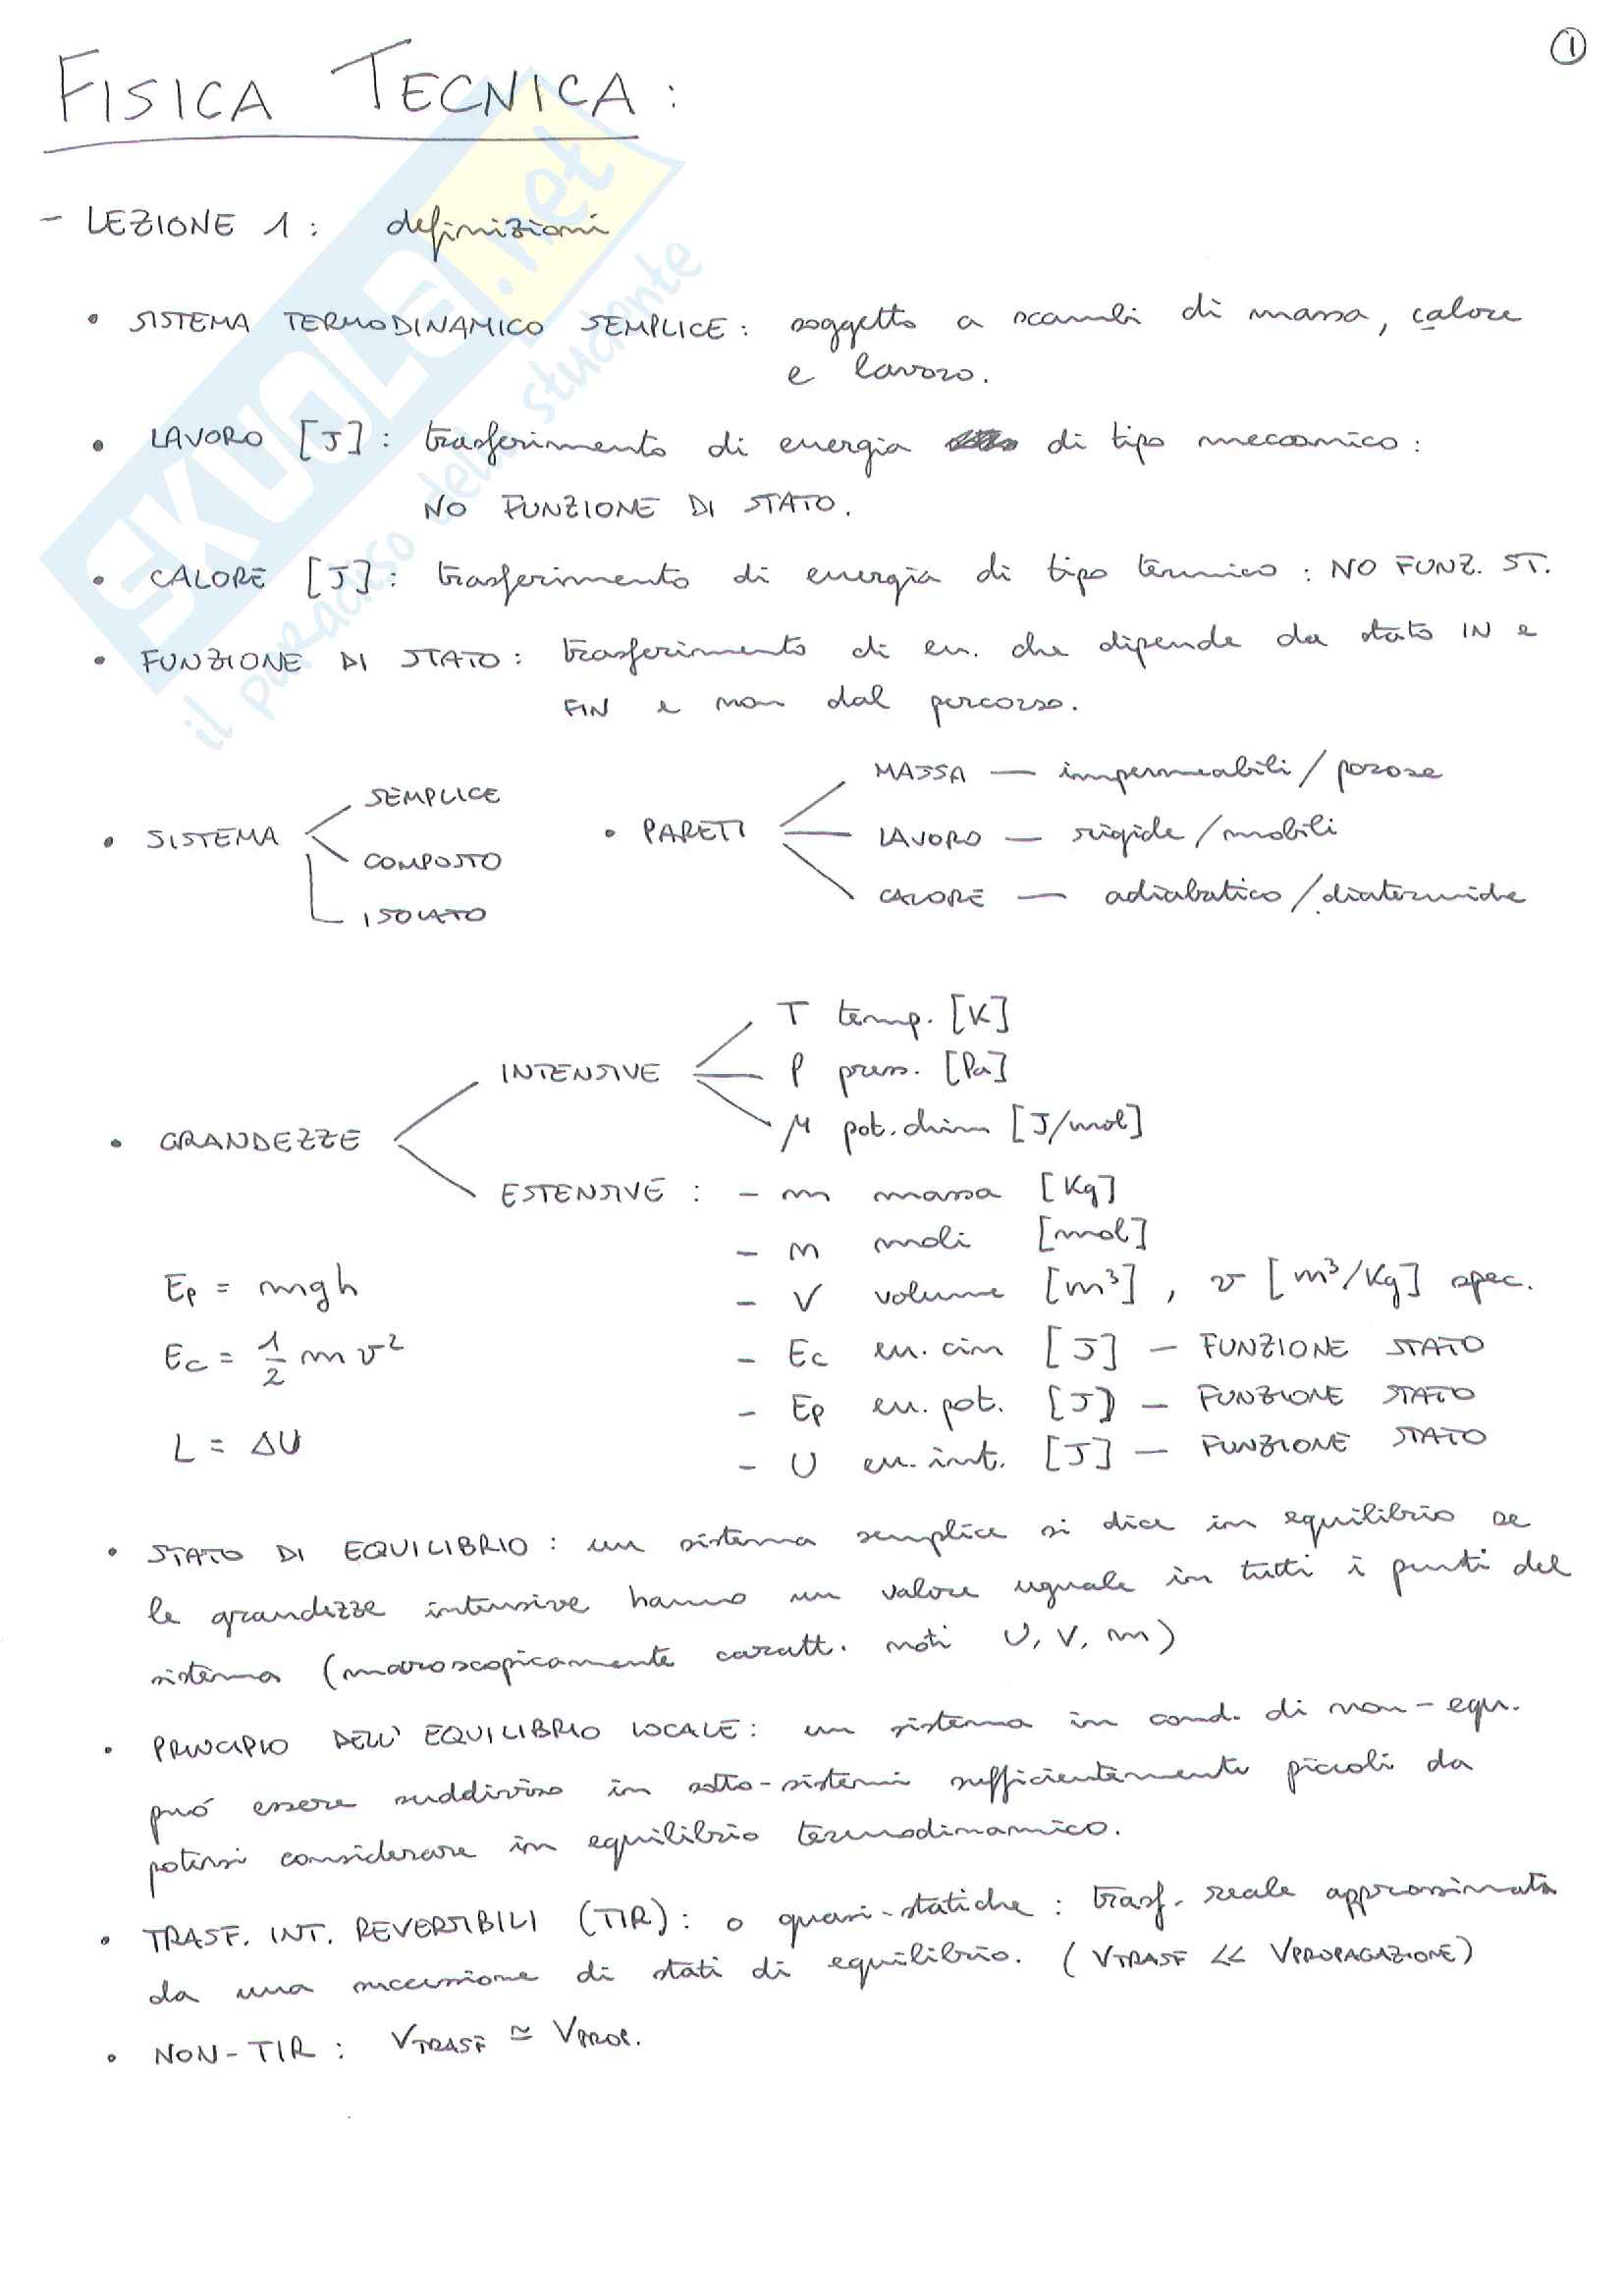 ①
FISICA TECNICA:
- LEZIONE 1: definizioni
• SISTEMA TERMODINAMICO SEMPLICE: soggetto a scambi di massa, calore
e lavoro.
• LAVORO [J]: trasferimento di energia di tipo meccanico:
NO FUNZIONE DI STATO.
• CALORE [J]: trasferimento di energia di tipo termico: NO FUNZ. ST.
• FUNZIONE DI STATO: trasferimento di en. che dipende da stato IN e
FIN e non dal percorso.
• SISTEMA
SEMPLICE
COMPOSTO
ISOLATO
• PARETI
MASSA — impermeabili/porose
LAVORO — rigide/mobili
CALORE — adiabatico/diatermiche
• GRANDEZZE
INTENSIVE
T temp. [K]
P press. [Pa]
μ pot. chim [J/mol]
ESTENSIVE:
- m massa [Kg]
- n moli [mol]
- V volume [m³], v [m³/Kg] spec.
- Ec en. cin [J] — FUNZIONE STATO
- Ep en. pot. [J] — FUNZIONE STATO
- U en. int. [J] — FUNZIONE STATO
Ep = mgh
Ec = 1/2 m v²
L = ΔU
• STATO DI EQUILIBRIO: un sistema semplice si dice in equilibrio se
le grandezze intensive hanno un valore uguale in tutti i punti del
sistema (macroscopicamente caratt. noti U, V, m)
• PRINCIPIO DELL'EQUILIBRIO LOCALE: un sistema in cond. di non-equ.
può essere suddiviso in sotto-sistemi sufficientemente piccoli da
potersi considerare in equilibrio termodinamico.
• TRASF. INT. REVERSIBILI (TIR): o quasi-statiche: trasf. reale approssimata
da una successione di stati di equilibrio. (VTRASF << VPROPAGAZIONE)
• NON-TIR: VTRASF ≃ VPROP.
SKUOLA.net
il paradiso dello studente